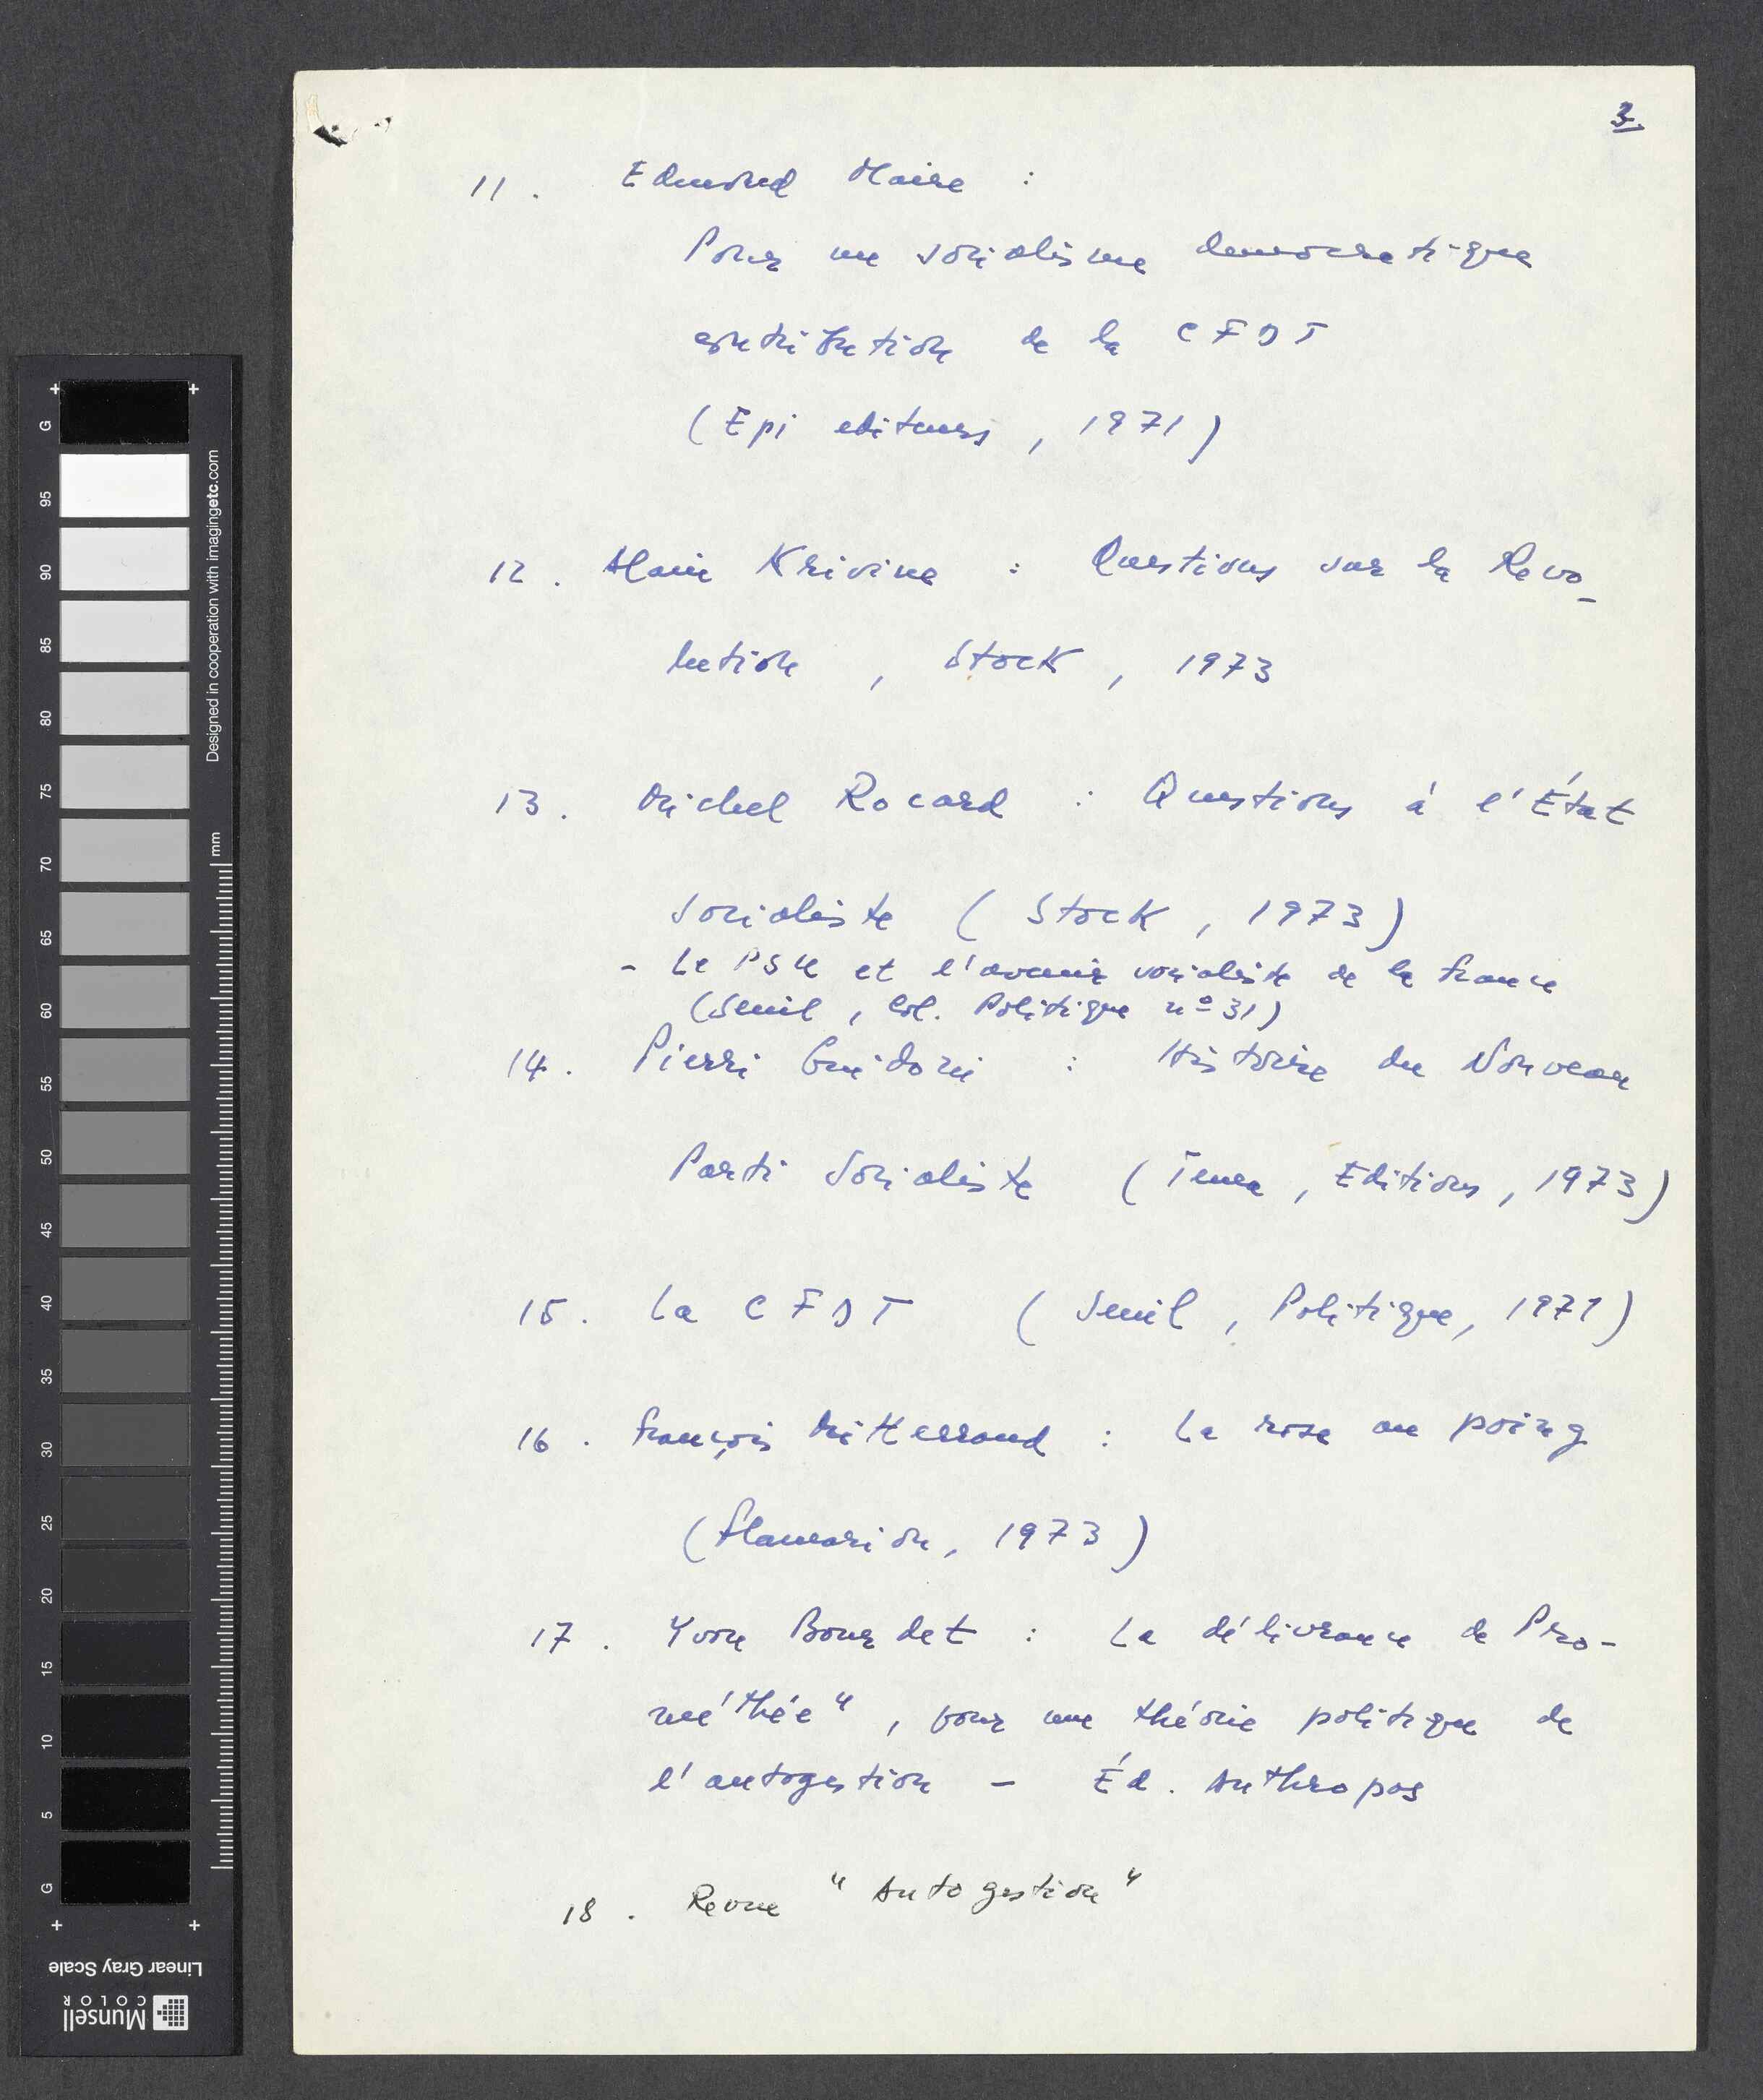 3.
11. Edmond Maire :
Pour un socialisme democratique
contribution de la CFDT
(Epi editeurs, 1971)
12. Alain Krivine : Questions sur la Revo-
lution, Stock, 1973
13. Michel Rocard : Questions à l'État
socialiste (Stock, 1973)
- Le PSU et l'avenir socialiste de la France
(Seuil, col. Politique nº 31)
14. Pierri Guidoni : Histoire du Nouveau
Parti Socialiste (Tema, Editions, 1973)
15. La CFDT (Seuil, Politique, 1971)
16. François Mitterrand : La rose au poing
(Flamarion, 1973)
17. Yvon Bourdet : La délivrance de Pro-
méthée", pour une théorie politique de
l'autogestion - Éd. Anthropos
18. Revue "Autogestion"
G
95
90
85
80
75
70
65
60
55
50
45
40
35
30
25
20
15
10
5
G
Designed in cooperation with imagingetc.com
mm
Linear Gray Scale
Munsell
COLOR